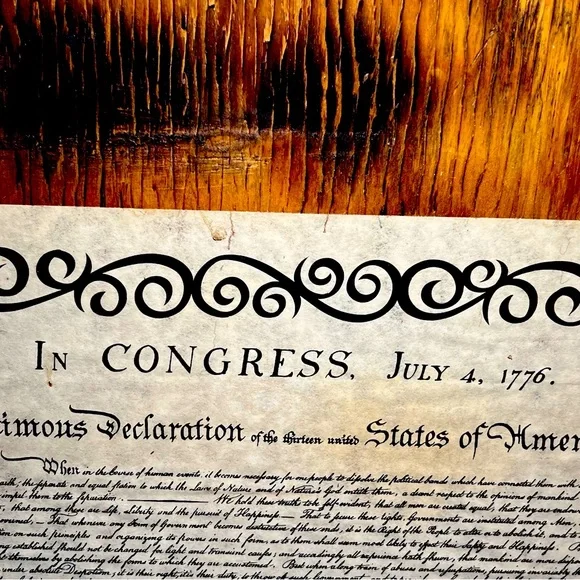 In CONGRESS, July 4, 1776.
imous Declaration of the thirteen united States of Amer
When in the Course of human events, it becomes necessary for one people to dissolve the political bands which have connected them with
the separate and equal station to which the Laws of Nature and of Nature's God entitle them, a decent respect to the opinions of mankind
impel them to the separation. We hold these truths to be self-evident, that all men are created equal, that they are endow
that among these are Life, Liberty and the pursuit of Happiness. That to secure these rights, Governments are instituted among Men,
That whenever any Form of Government becomes destructive of these ends, it is the Right of the People to alter or to abolish it, and to
on such principles and organizing its powers in such form, as to them shall seem most likely to effect their Safety and Happiness.
established should not be changed for light and transient causes; and accordingly all experience hath shewn, that mankind are more
by abolishing the forms to which they are accustomed. But when a long train of abuses and usurpations, pursuing invariably
under absolute Despotism, it is their right, it is their duty, to throw off such Government, and